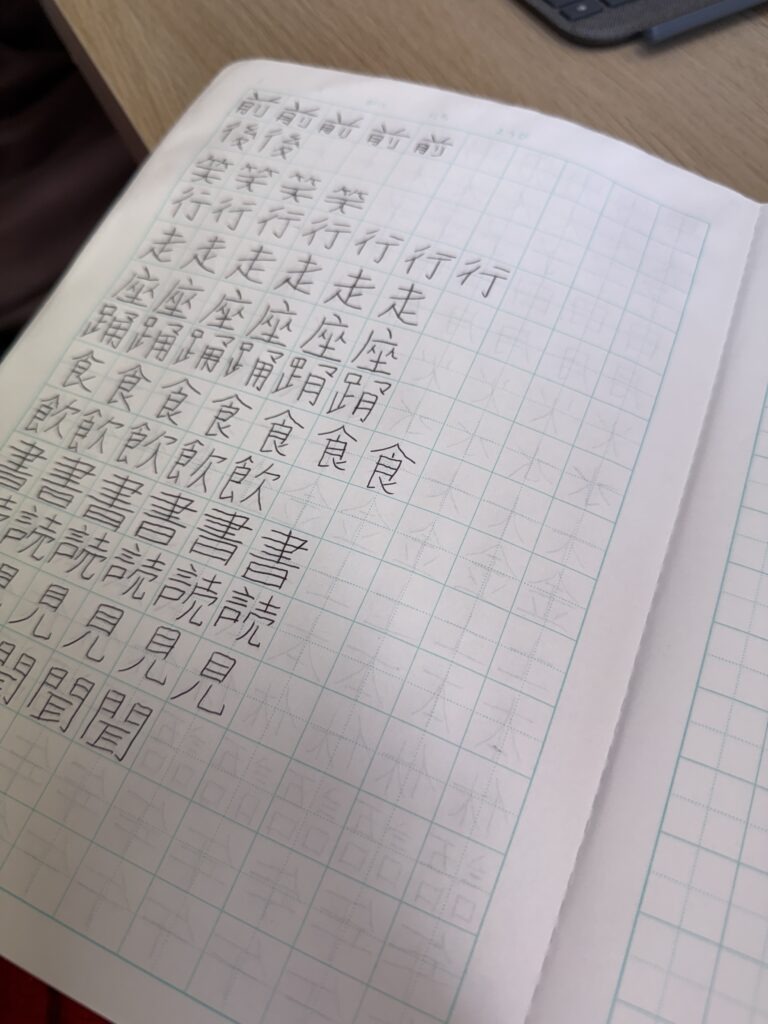 前前前前前
後後
笑笑笑笑
行行行行行行行
走走走走走走
座座座座座座
踊踊踊踊踊踊
食食食食食食食
飲飲飲飲飲
書書書書書書
読読読読読読
見見見見見
聞聞聞